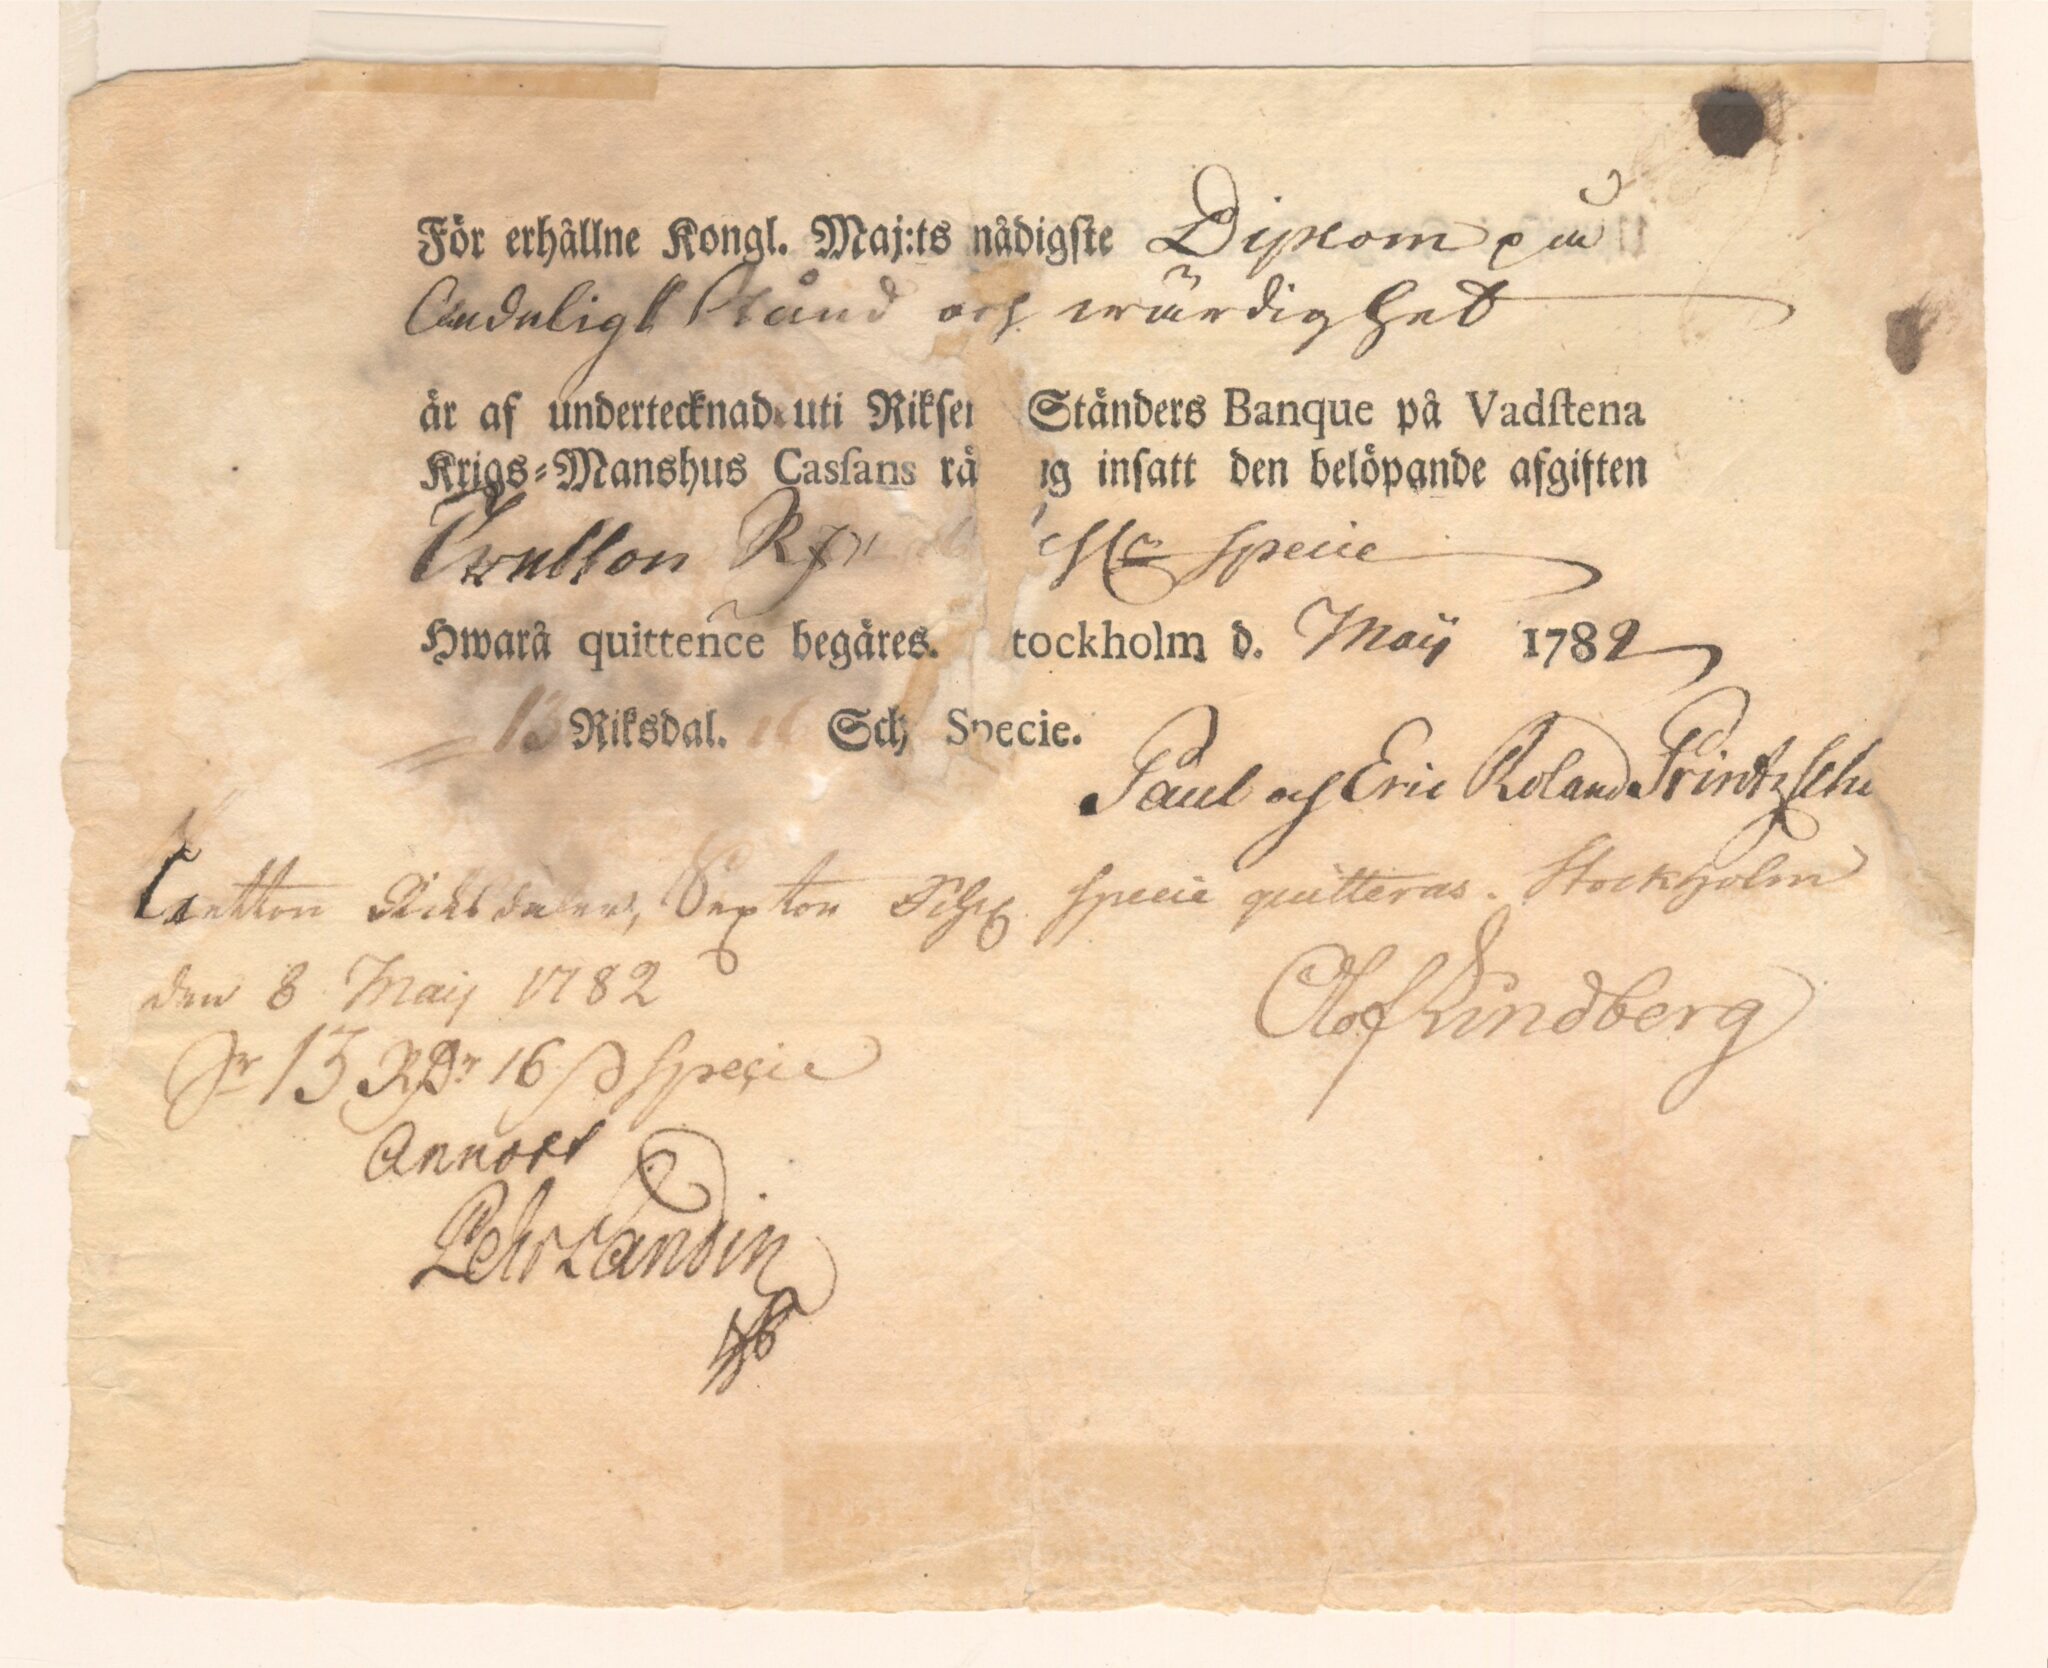 För erhållne Kongl. Maj:ts nådigste Diplom på
Andeligt stånd och wärdighet
är af undertecknad uti Riksens Ständers Banque på Vadstena
Krigs=Manshus Cassans räg insatt den belöpande afgiften
Tretton Rdr specie
Hwarå quittence begäres. Stockholm d. Maij 1782
13 Riksdal. 16 Sch Specie.
Paul och Eric Roland Printzsche
Tretton Riksdaler, Sexton Schg specie quitteras. Stockholm
den 8 Maij 1782
Olof Lindberg
Sr 13 RDr 16 ß specie
Annott
Pehr Landin